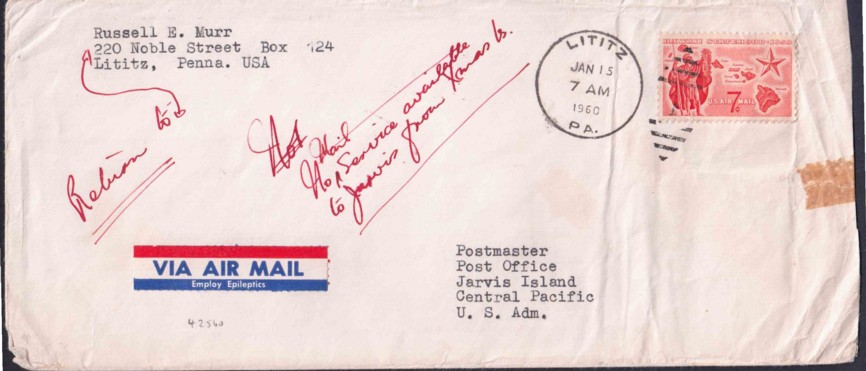 Russell E. Murr
220 Noble Street Box 124
Lititz, Penna. USA
Return to
Not
Mail
No Service available
to Jarvis from Xmas Is.
LITITZ
JAN 15
7 AM
1960
PA.
HAWAII STATEHOOD 1959
U.S. AIR MAIL 7c
VIA AIR MAIL
Employ Epileptics
42560
Postmaster
Post Office
Jarvis Island
Central Pacific
U. S. Adm.